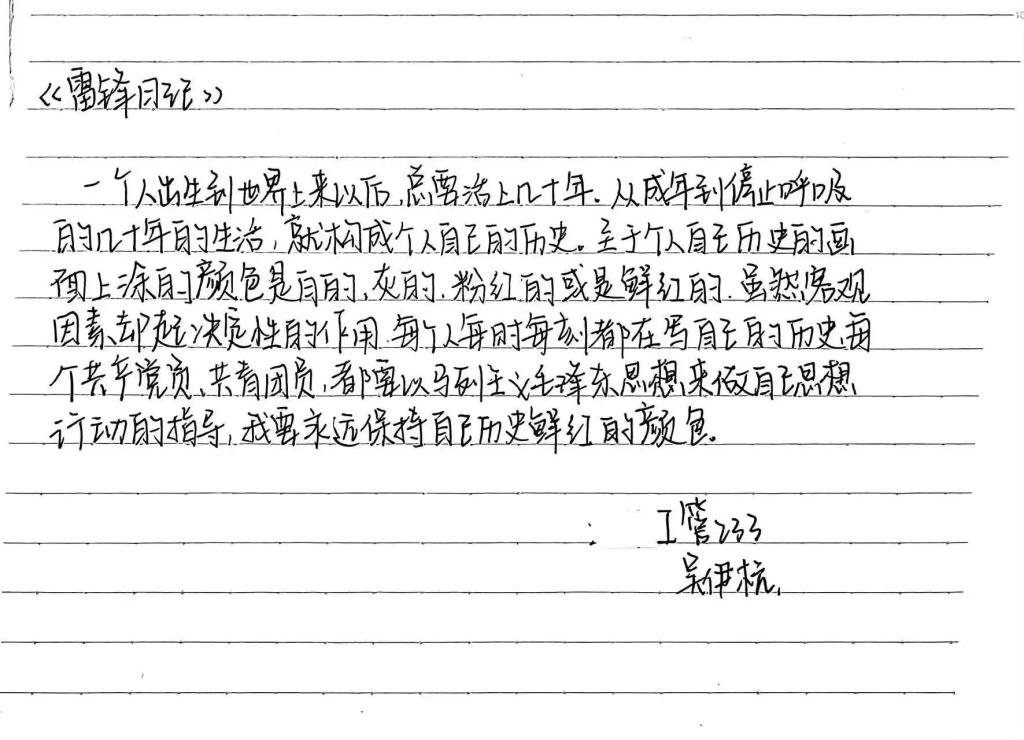 《雷锋日记》
一个人出生到世界上来以后,总要活上几十年.从成年到停止呼吸
的几十年的生活,就构成个人自己的历史。至于个人自己历史的画
面上涂的颜色是白的、灰的、粉红的或是鲜红的.虽然客观
因素却起决定性的作用.每个人每时每刻都在写自己的历史,每
个共产党员、共青团员,都要以马列主义毛泽东思想来做自己思想
行动的指导,我要永远保持自己历史鲜红的颜色。
工管233
吴伊杭